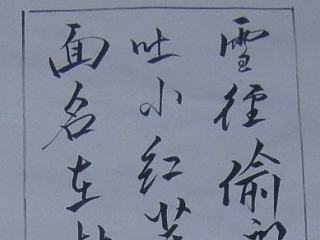 雪径偷
吐小红芽
面名在